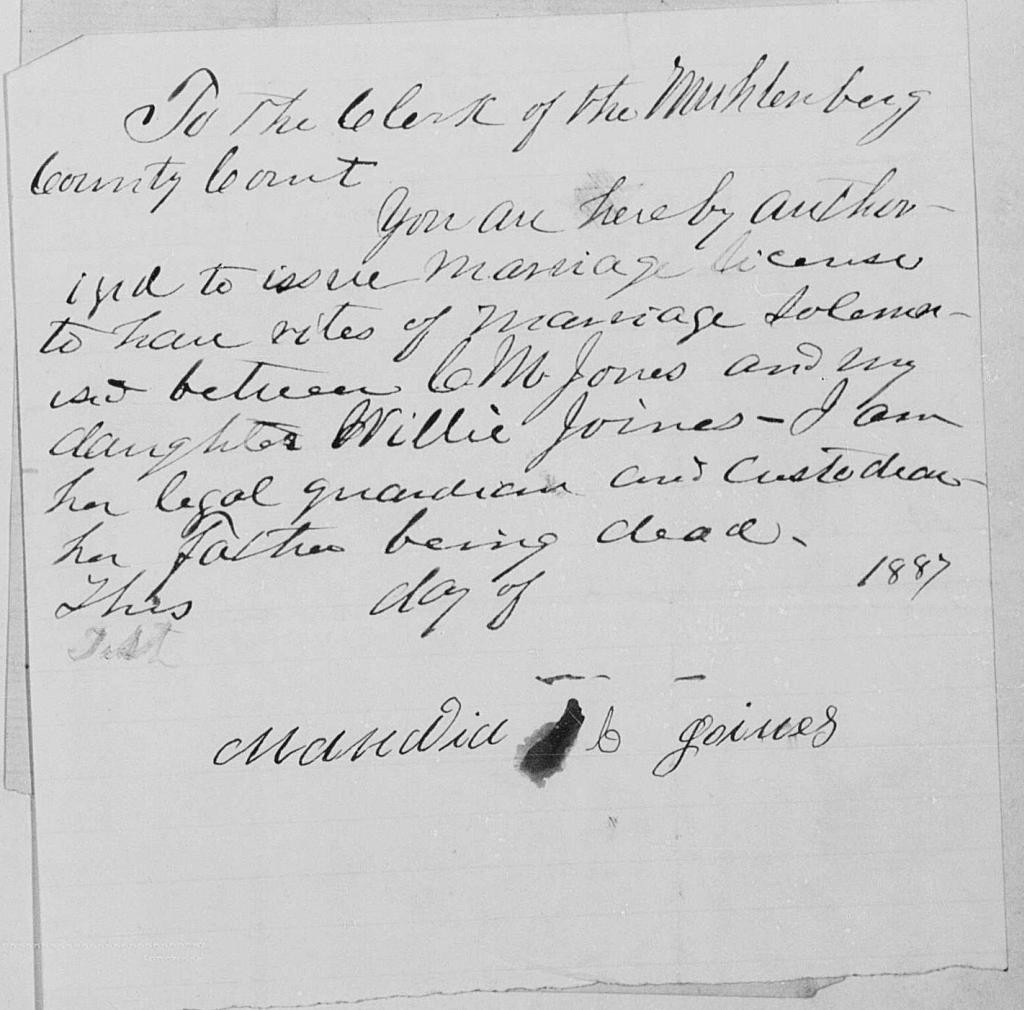 To the Clerk of the Muhlenberg
County Court
You are hereby author-
ized to issue marriage license
to have rites of marriage solemn-
ised between C M Jones and my
daughter Willie Joines - I am
her legal guardian and custodian
her father being dead.
This day of 1887
Test
C Joines